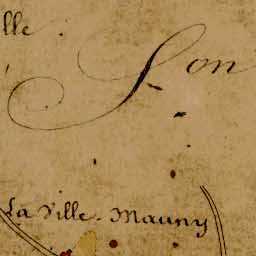 lle.
S.on
La Ville-Mauny